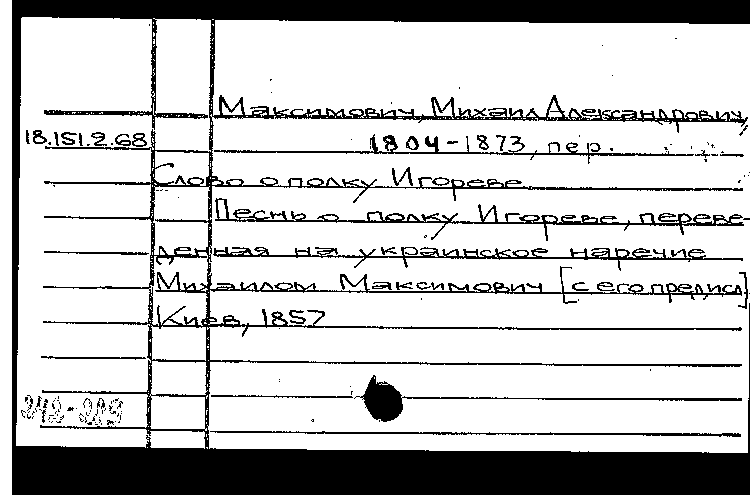 Максимович, Михаил Александрович,
18.151.2.68 1804-1873, пер.
Слово о полку Игореве
Песнь о полку Игореве, переве-
денная на украинское наречие
Михаилом Максимович [с его предисл]
Киев, 1857